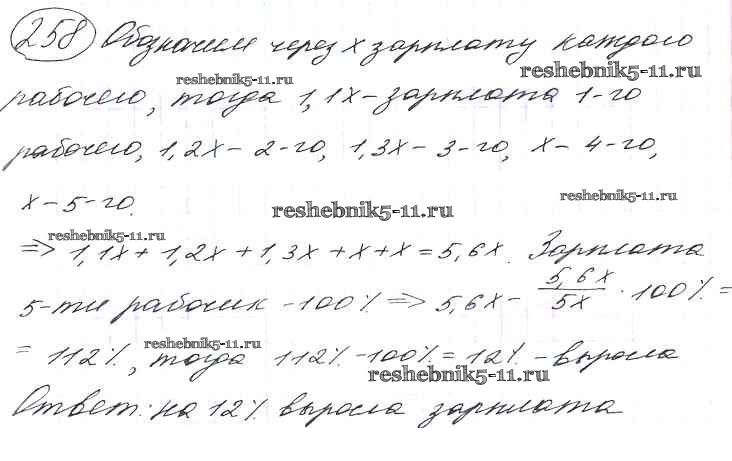 258 Обозначим через x зарплату каждого
reshebnik5-11.ru
reshebnik5-11.ru
рабочего, тогда 1,1x – зарплата 1-го
рабочего, 1,2x – 2-го, 1,3x – 3-го, x – 4-го,
reshebnik5-11.ru
x – 5-го.
reshebnik5-11.ru
reshebnik5-11.ru
=> 1,1x + 1,2x + 1,3x + x + x = 5,6x. Зарплата
5-ти рабочих – 100% => 5,6x – 5,6x/5x · 100% =
= 112%, тогда 112% – 100% = 12% – выросла
reshebnik5-11.ru
reshebnik5-11.ru
Ответ: на 12% выросла зарплата